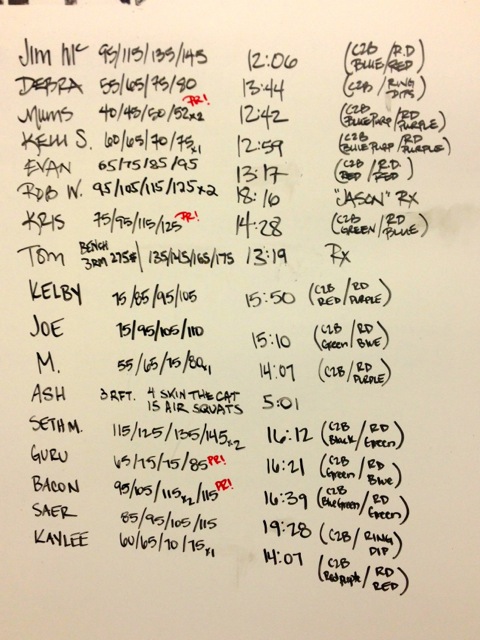 Jim Mc 95/115/135/145 12:06 (C2B BLUE/R.D RED)
DEBRA 55/65/75/80 13:44 (C2B/RING DIPS)
Mums 40/43/50/52x2 PR! 12:42 (C2B BLUE PURP/RD PURPLE)
Kelli S. 60/65/70/75x1 12:59 (C2B BLUE PURP/RD PURPLE)
EVAN 65/75/85/95 13:17 (C2B RED/R.D. RED)
ROB W. 95/105/115/125x2 18:16 "JASON" RX
KRIS 75/95/115/125 PR! 14:28 (C2B GREEN/RD BLUE)
Tom BENCH 3RM 275#/135/145/165/175 13:19 RX
KELBY 75/85/95/105 15:50 (C2B RED/RD PURPLE)
JOE 75/95/105/110 15:10 (C2B Green/RD Blue)
M. 55/65/75/80x1 14:07 (C2B/RD PURPLE)
ASH 3 RFT. 4 SKIN THE CAT
15 AIR SQUATS 5:01
SETH M. 115/125/135/145x2 16:12 (C2B Black/RD Green)
GURU 65/75/75/85 PR! 16:21 (C2B Green/RD Blue)
BACON 95/105/115x2/115 PR! 16:39 (C2B Blue Green/RD Green)
SAER 85/95/105/115 19:28 (C2B/RING DIP)
KAYLEE 60/65/70/75x1 14:07 (C2B Red purple/RD RED)